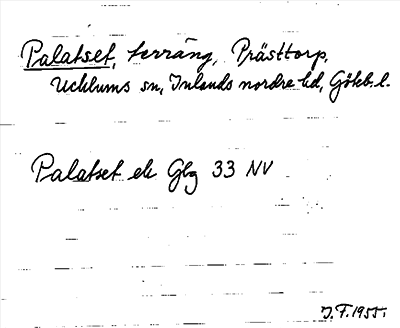 Palatset, terräng, Prästtorp,
Ucklums sn, Inlands nordre hd, Göteb. l.
Palatset ek Gbg 33 NV
J.F. 1955.